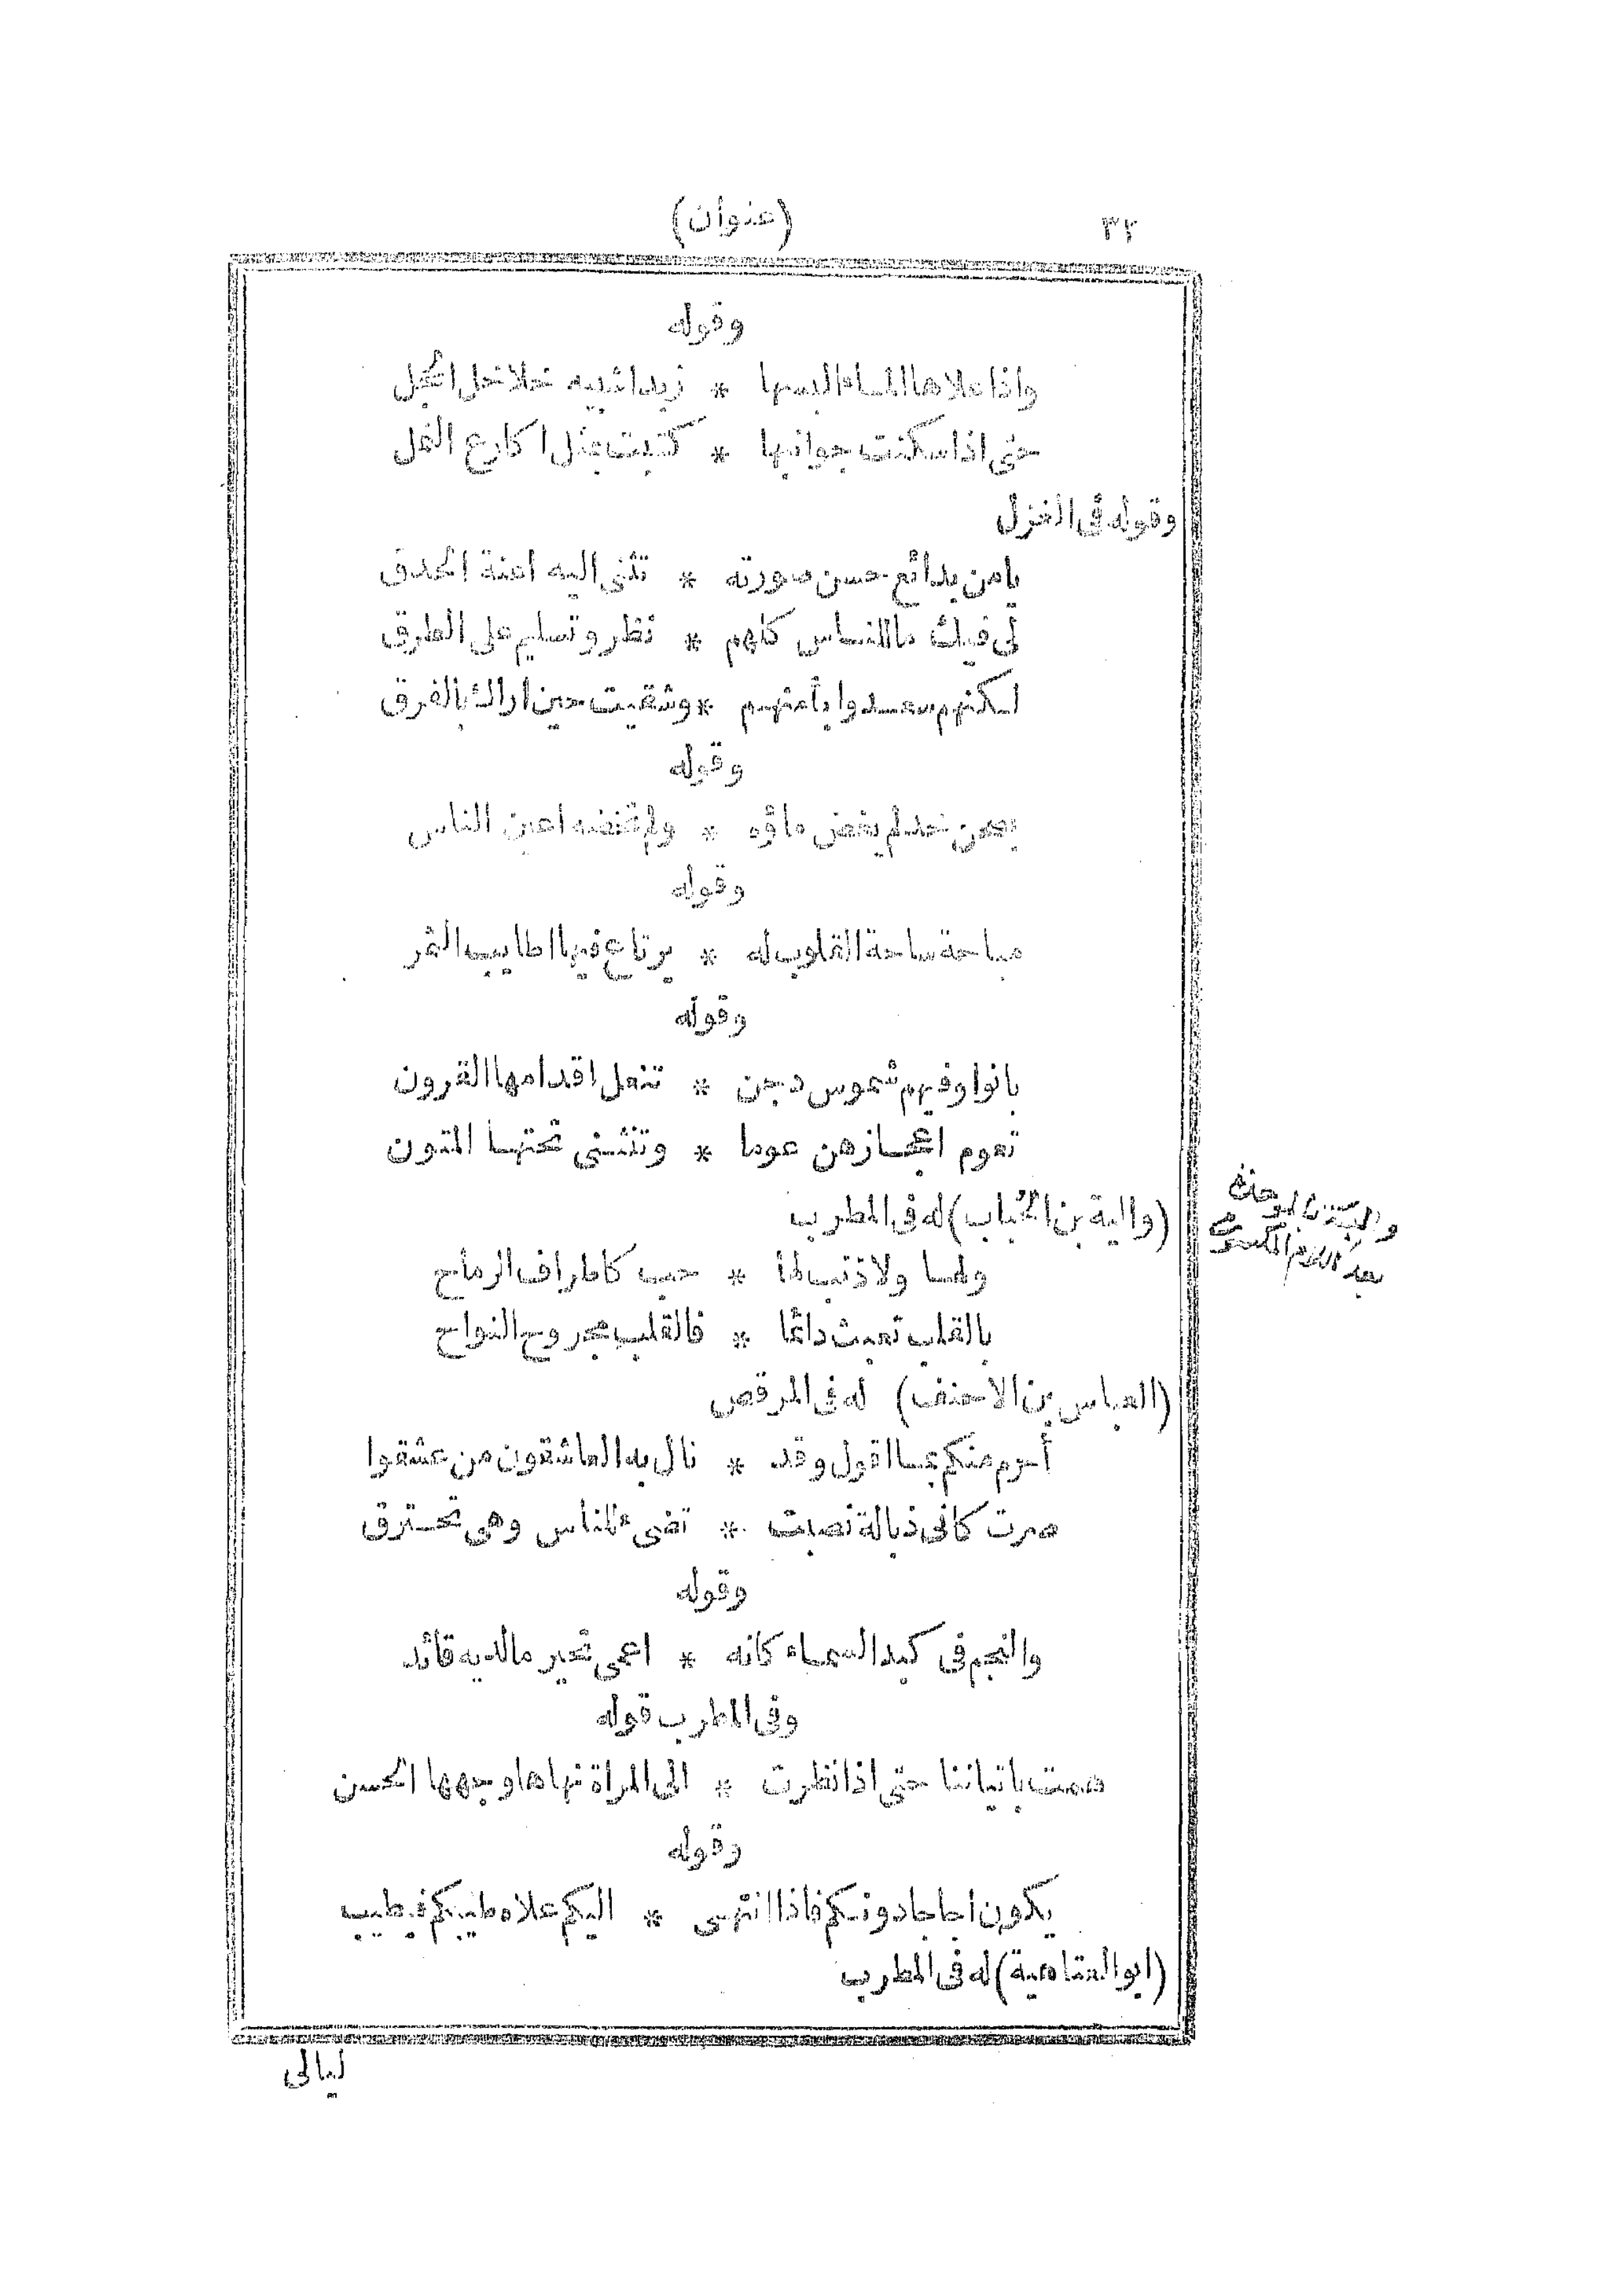 ٣٢
(عنوان)
وقوله
واذا علاها الماء البسها * زبدا شبيه خلاخل الحجل
حتى اذا سكنت جوانبها * كتبت بمثل اكارع النمل
وقوله فى الغزل
يا من بدائع حسن صورته * تثنى اليه اعنة الحدق
لى فيك ما للناس كلهم * نظر وتسليم على الطرق
لكنهم سعدوا بأمنهم * وشقيت حين اراك بالفرق
وقوله
بصحن خد لم يغض ماؤه * ولم تخضه اعين الناس
وقوله
مباحة ساحة القلوب له * يرتاع فيها اطايب الثمر
وقوله
بانوا وفيهم شموس دجن * تنعل اقدامها القرون
تعوم اعجازهن عوما * وتنثنى تحتها المتون
(والبة بن الحُباب) له فى المطرب
ولها ولا ذنب لها * حب كاطراف الرماح
بالقلب تعبث دائما * فالقلب مجروح النواح
(العباس بن الاحنف) له فى المرقص
أحرم منكم بما اقول وقد * نال به العاشقون من عشقوا
صرت كانى ذبالة نصبت * تضىء للناس وهى تحترق
وقوله
والنجم فى كبد السماء كانه * اعمى تحير ما لديه قائد
وفى المطرب قوله
همت باتياننا حتى اذا نظرت * الى المراة نهاها وجهها الحسن
وقوله
يكون اجاجا دونكم فاذا انتهى * اليكم علاه طيبكم فيطيب
(ابو العتاهية) له فى المطرب
ليالى